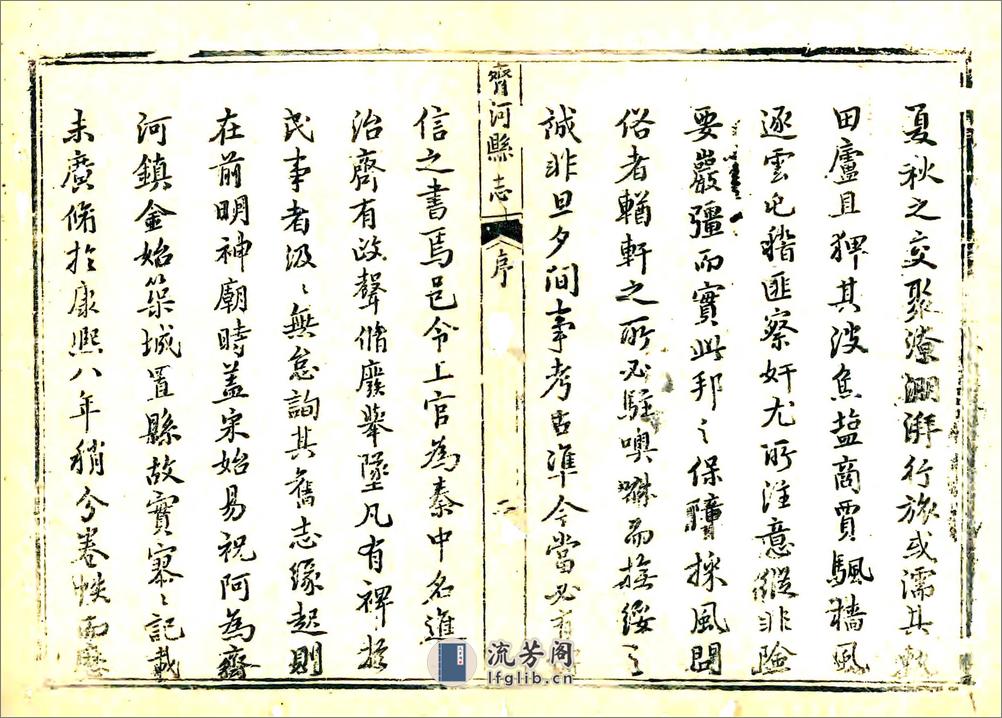 夏秋之交聚潦淜湃行旅或濡其軌
田廬且狎其波魚鹽商賈颿檣風
逐雲屯稽匪察奸尤所注意縱非險
要巖疆而實此邦之保障採風問
俗者輶軒之所必駐噢咻而撫綏之
誠非旦夕間事考古準今當必有
齊河縣志 序 二
信之書焉邑令上官為秦中名進
治齊有政聲脩廢舉墜凡有裨於
民事者汲〻無怠詢其舊志緣起則
在前明神廟時蓋宋始易祝阿為齊
河鎮金始築城置縣故實寥〻記載
未廣脩於康熙八年稍分卷帙而
流芳阁
lfglib.cn